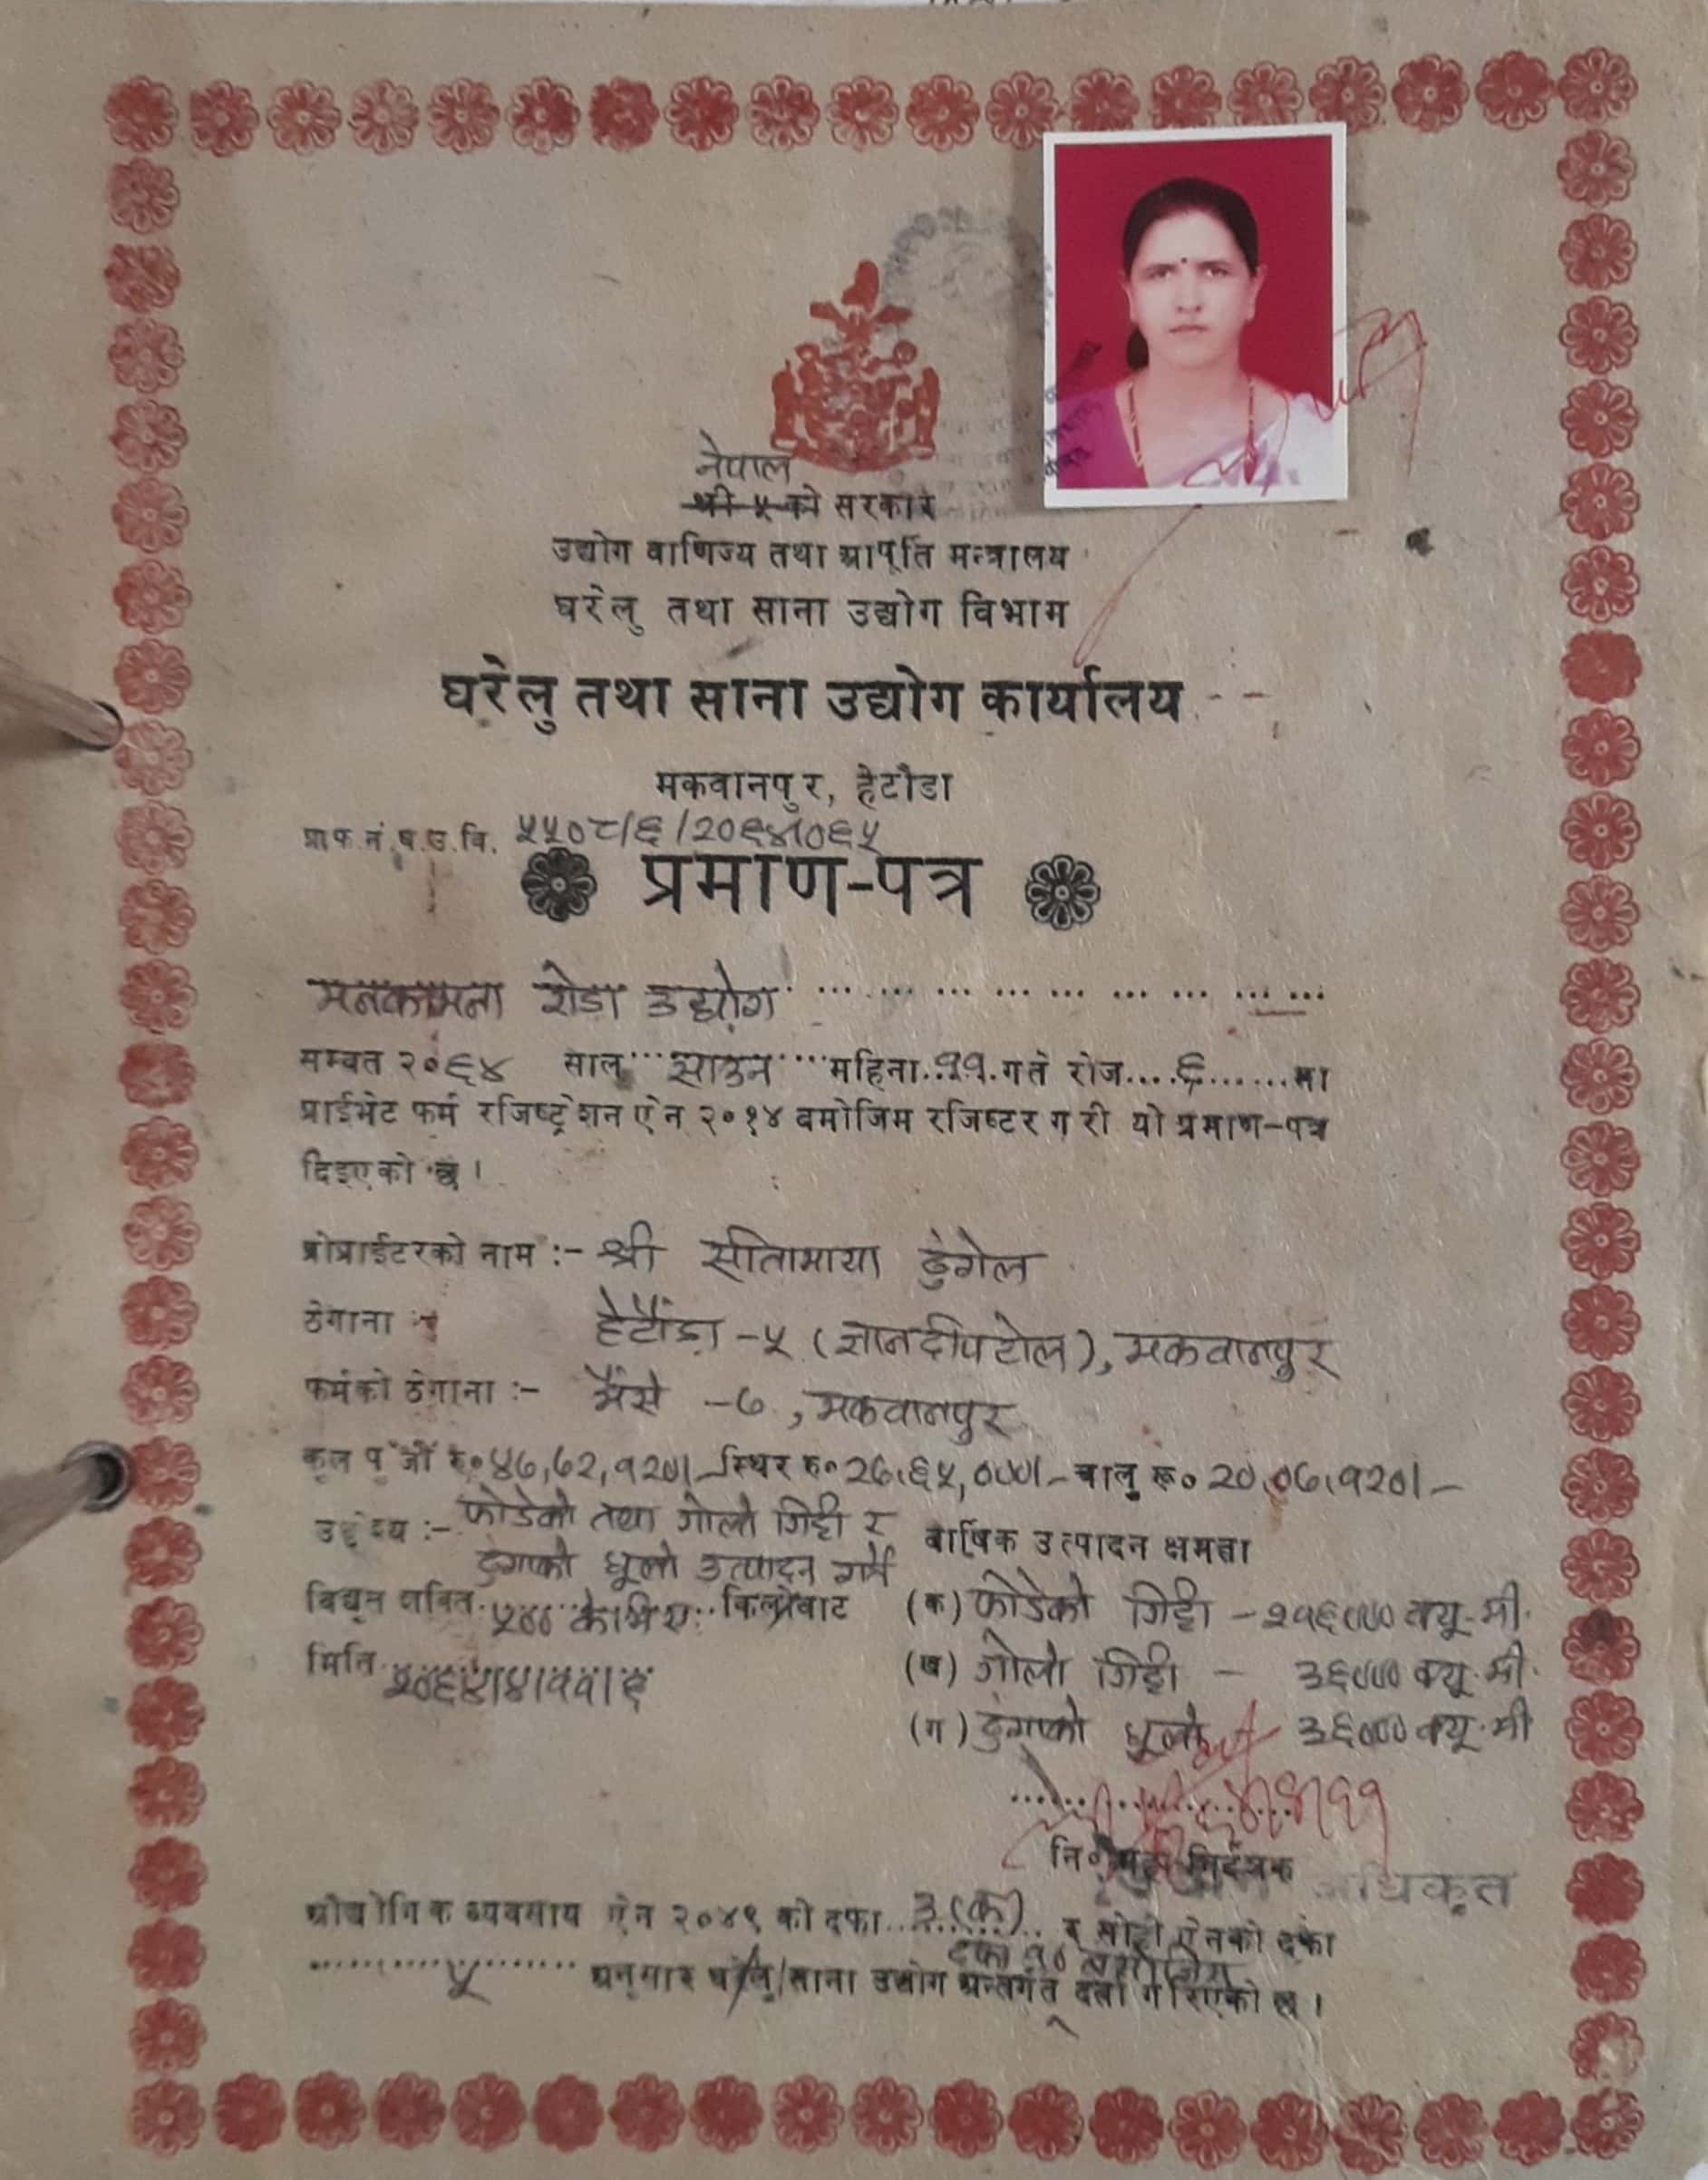 नेपाल
श्री ५ को सरकार
उद्योग वाणिज्य तथा आपूर्ति मन्त्रालय
घरेलु तथा साना उद्योग विभाग
घरेलु तथा साना उद्योग कार्यालय
मकवानपुर, हेटौडा
प्रा.फ.नं.घ.उ.वि. ५५०८/६/२०६४/०६५
प्रमाण-पत्र
मनकामना रोडा उद्योग
सम्वत २०६४ साल साउन महिना ११ गते रोज ६ मा
प्राईभेट फर्म रजिष्ट्रेशन ऐन २०१४ बमोजिम रजिष्टर गरी यो प्रमाण-पत्र
दिइएको छ ।
प्रोप्राईटरको नाम :- श्री सीतामाया ढुंगेल
ठेगाना :- हेटौंडा -५ (ज्ञानदीपटोल), मकवानपुर
फर्मको ठेगाना :- भैंसे -७, मकवानपुर
कूल पूंजी रु० ४७,७२,१२०/- स्थिर रु० २७,६५,०००/- चालु रू० २०,०७,१२०/-
उद्देश्य :- फोडेको तथा गोलो गिट्टी र
ढुंगाको धूलो उत्पादन गर्ने
वार्षिक उत्पादन क्षमता
विद्युत शक्ति ५०० के.भि.ए. किलोवाट
(क) फोडेको गिट्टी - २१६००० क्यू.मी.
मिति २०६४/४/११/६
(ख) गोलो गिट्टी - ३६००० क्यू.मी.
(ग) ढुंगाको धूलो ३६००० क्यू.मी
नि० निर्देशक
अधिकृत
औद्योगिक व्यवसाय ऐन २०४९ को दफा ३(क) र सोही ऐनको दफा
दफा १० बमोजिम
५ अनुसार घरेलु/साना उद्योग अन्तर्गत दर्ता गरिएको छ ।